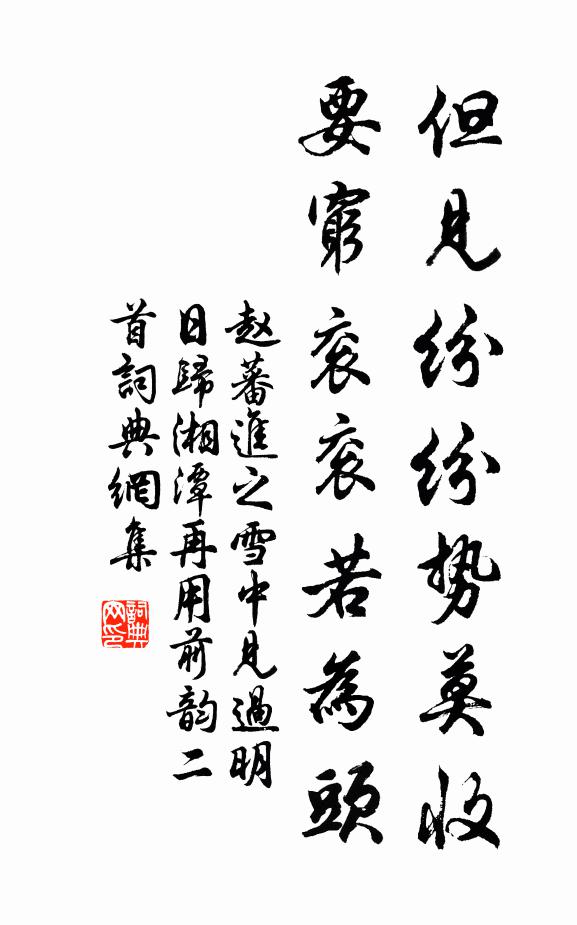 但見紛紛势莫收
要窮衮衮若為頭
赵蕃進之雪中見過明
日歸湘潭再用前韵二
首詞典網集
詞典
网印